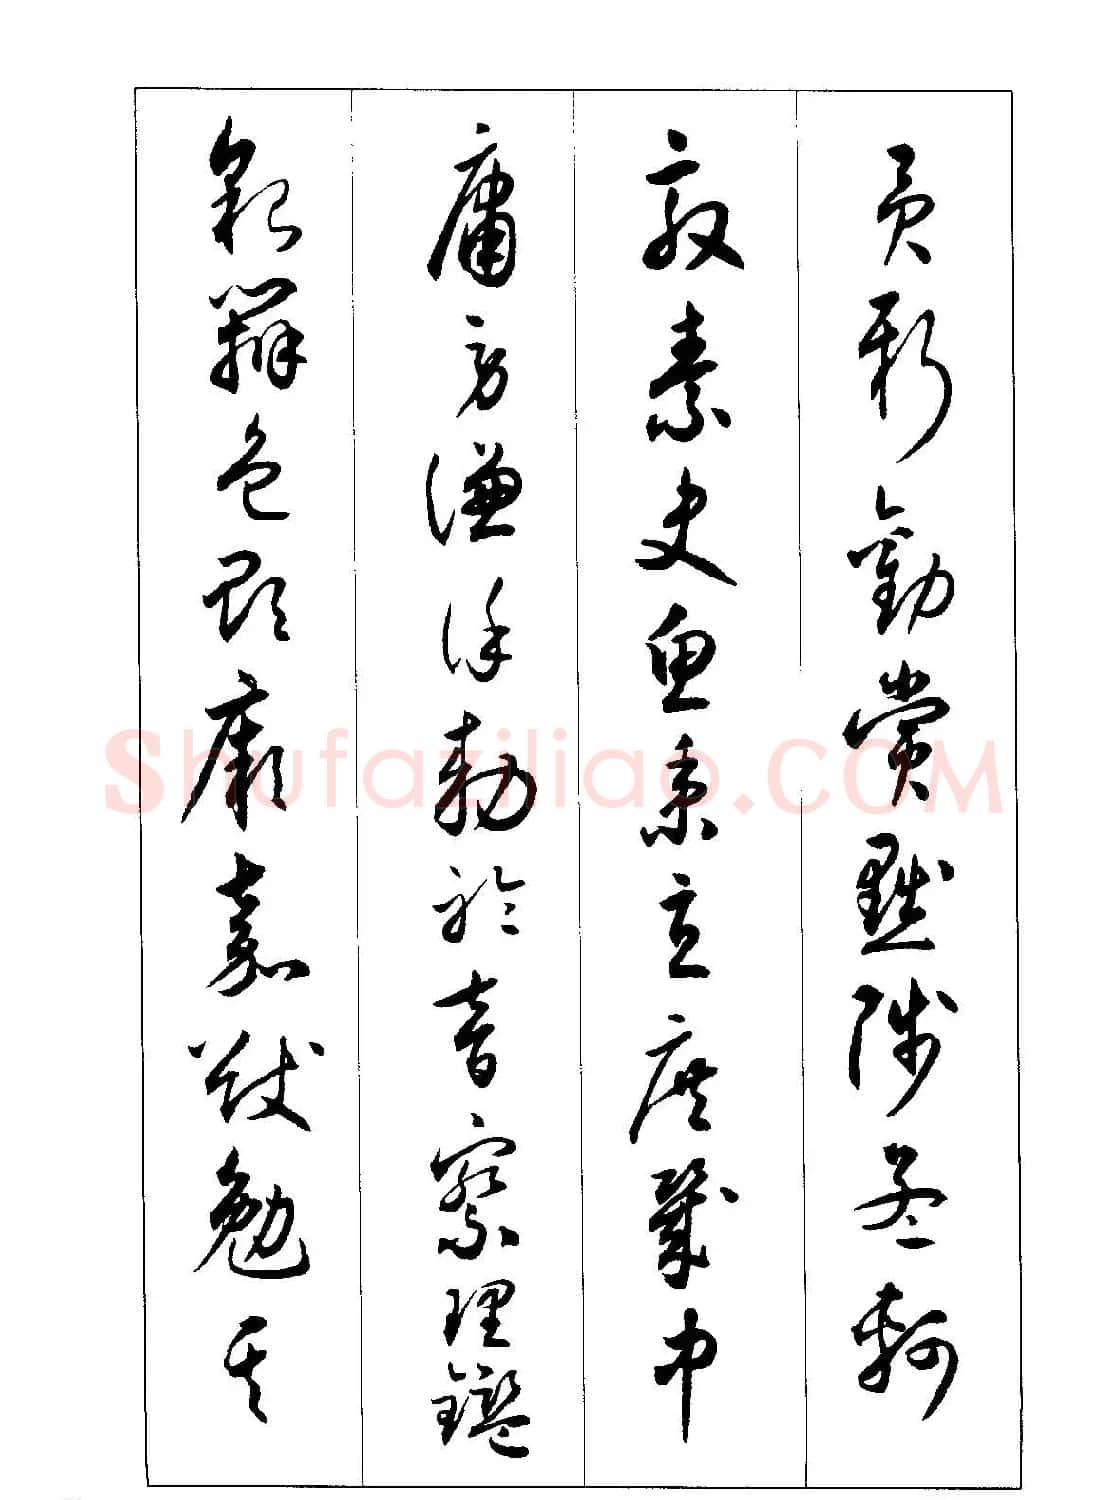 貢新勸賞黜陟孟軻
敦素史魚秉直庶幾中
庸勞謙謹勅聆音察理鑑
貌辨色貽厥嘉猷勉其
Shufaziliao.COM